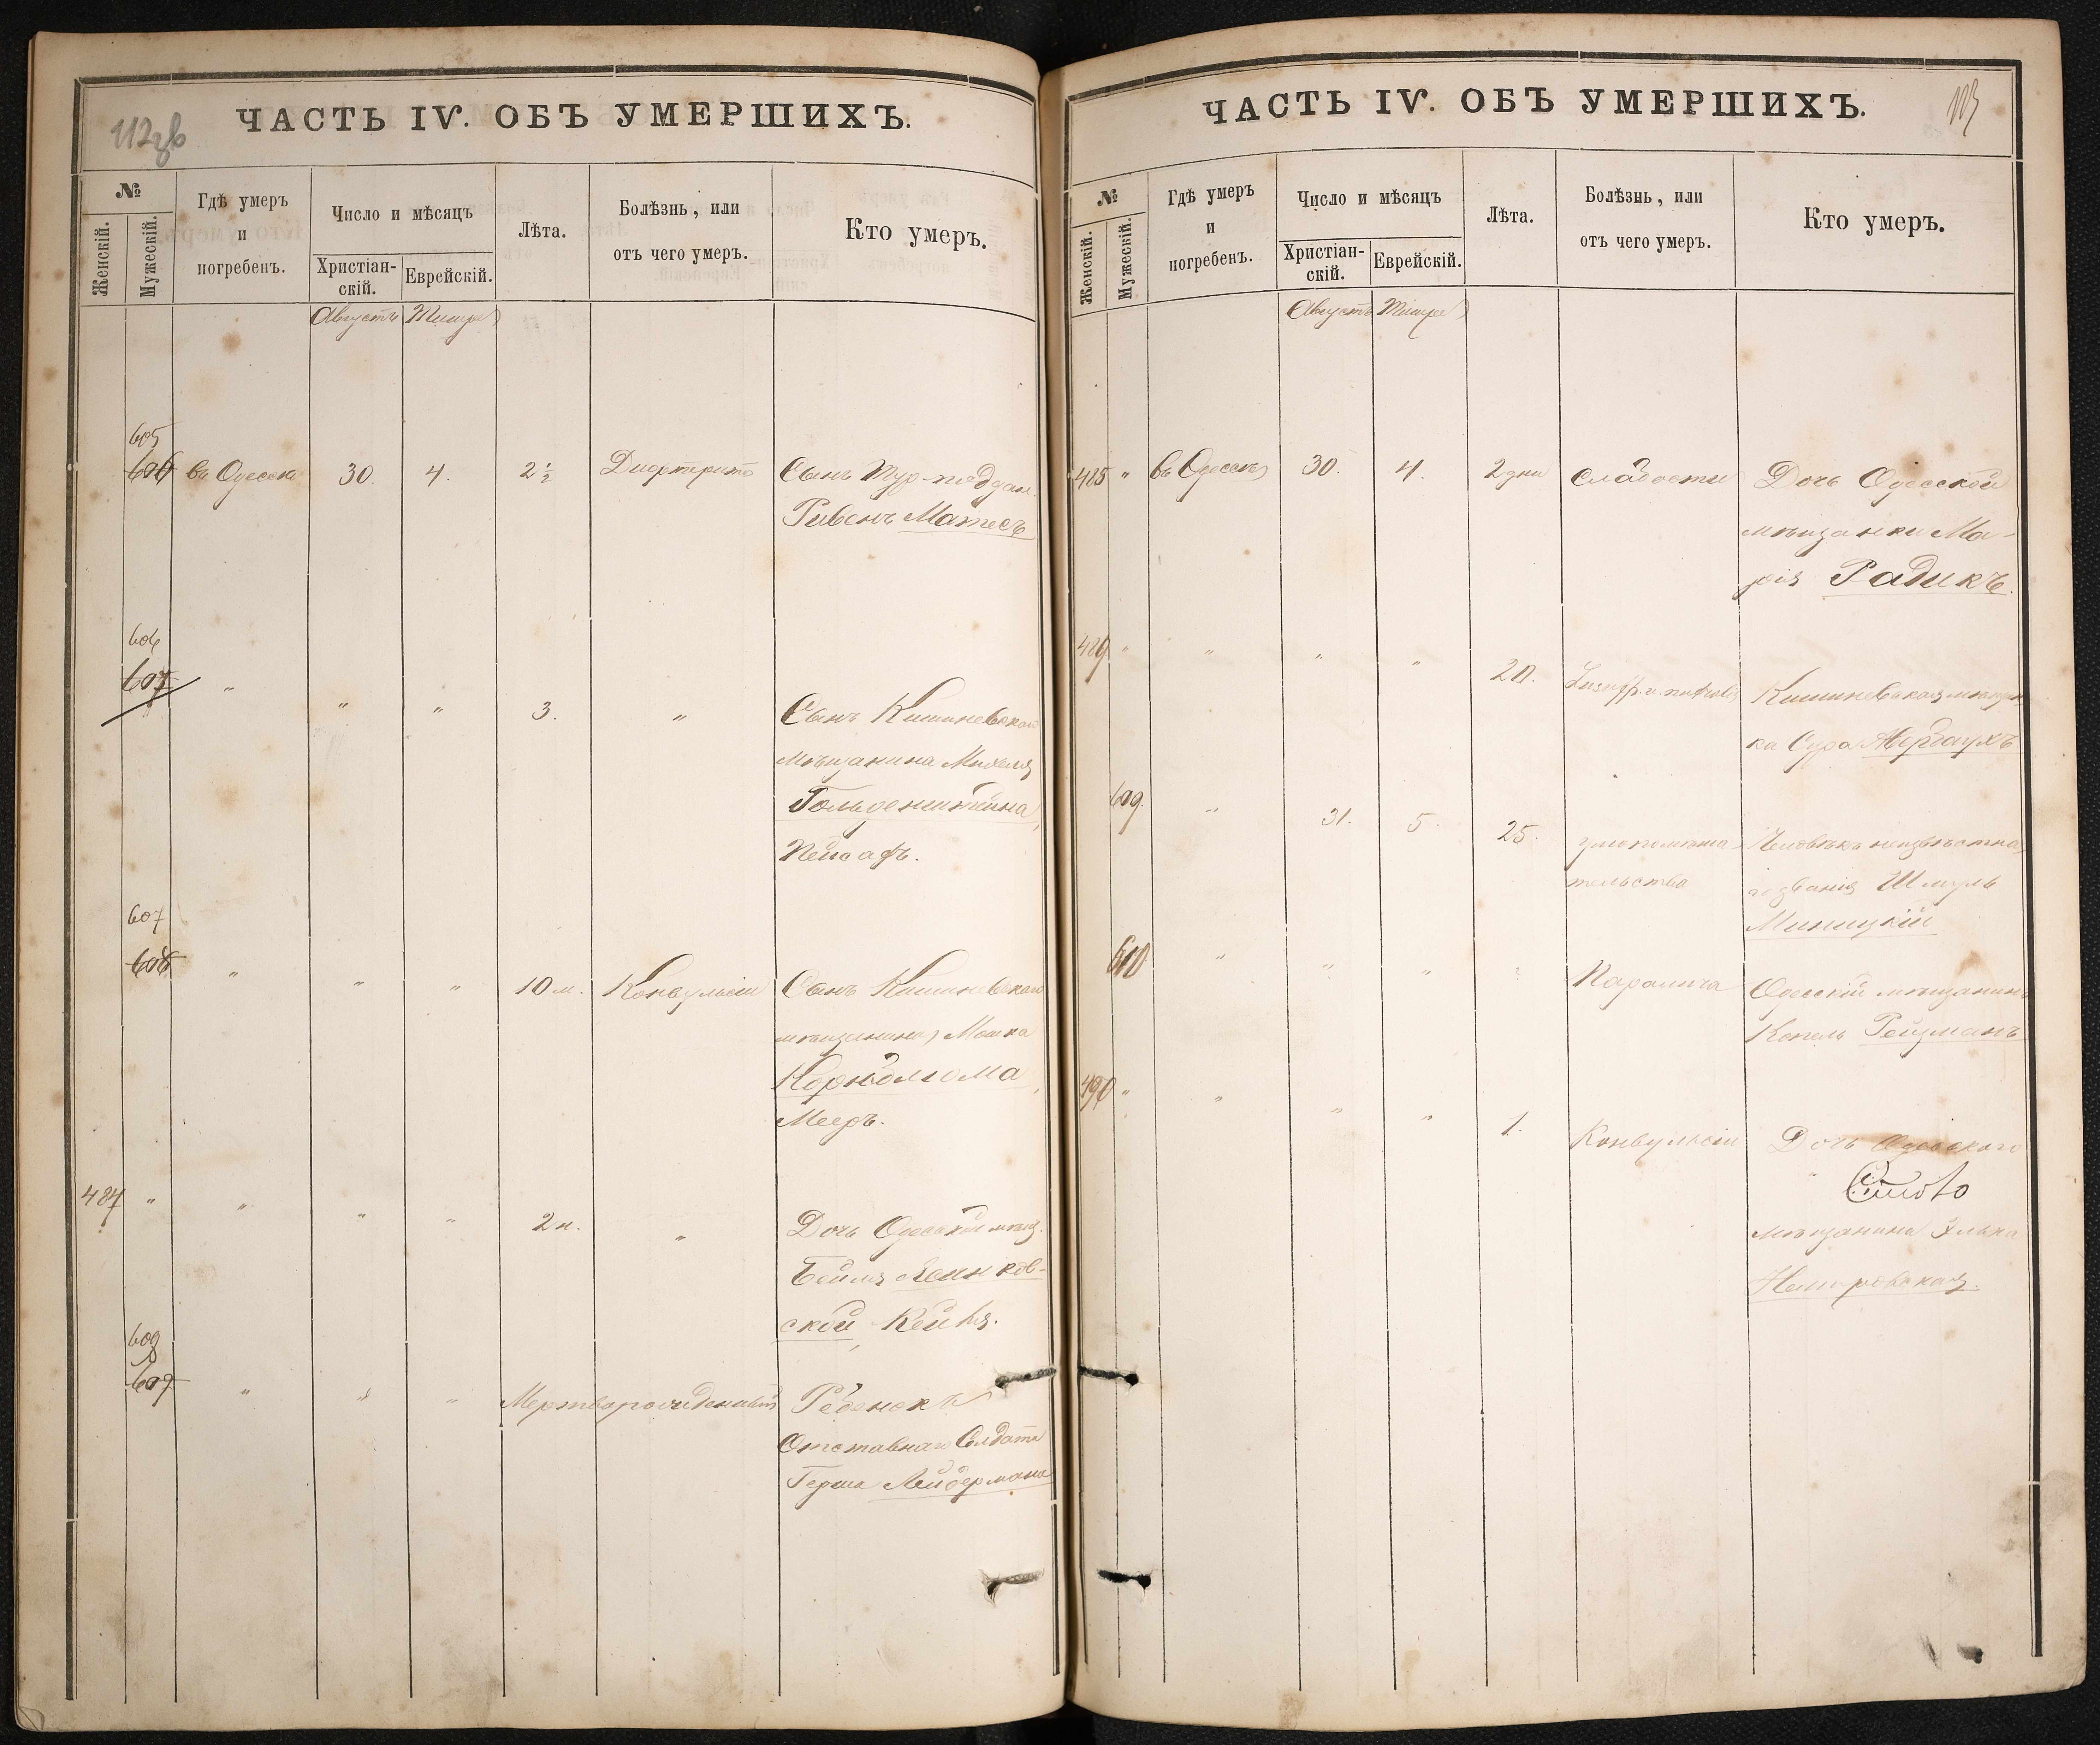 112 об
ЧАСТЬ IV. ОБЪ УМЕРШИХЪ.
№
Женскій.
Мужескій.
Гдѣ умеръ
и
погребенъ.
Число и мѣсяцъ
Христіан-
скій.
Еврейскій.
Лѣта.
Болѣзнь, или
отъ чего умеръ.
Кто умеръ.
Августъ Тишре
605
606 въ Одессѣ 30. 4. 2½ Дифтритъ Сынъ Тур-поддан.
Ривенъ Матесъ
606
607 " " " 3. " Сынъ Кишиневскаго
мѣщанина Михеля
Гольденштейна,
607
608 " " " 10 м. Конвульсіи Сынъ Кишиневскаго
мѣщанина Мошка
Мееръ.
487 " " " " 2 н. " Дочь Одесской мѣщ.
Бейля
ской, Кейля.
608
609 " " " Мертворожденный Ребенокъ
Отставнаго Солдата
Герша Лейдермана
113
ЧАСТЬ IV. ОБЪ УМЕРШИХЪ.
№
Женскій.
Мужескій.
Гдѣ умеръ
и
погребенъ.
Число и мѣсяцъ
Христіан-
скій.
Еврейскій.
Лѣта.
Болѣзнь, или
отъ чего умеръ.
Кто умеръ.
Августъ Тишре
488 " въ Одессѣ 30. 4. 2 дни Слабости Дочь Одесской
мѣщанки Ма-
рія Радикъ.
489 " " " " 20. Кишиневская мѣщан-
ка Сура
609. " 31. 5. 25. умопомѣша- Человѣкъ неизвѣстна-
тельства го званія Шмуль
Миницкій
610 " " " Паралича Одесскій мѣщанинъ
Копель Рейзманъ
490 " " " " 1. Конвульсіи Дочь Одесскаго
мѣщанина Элька
Немировская.